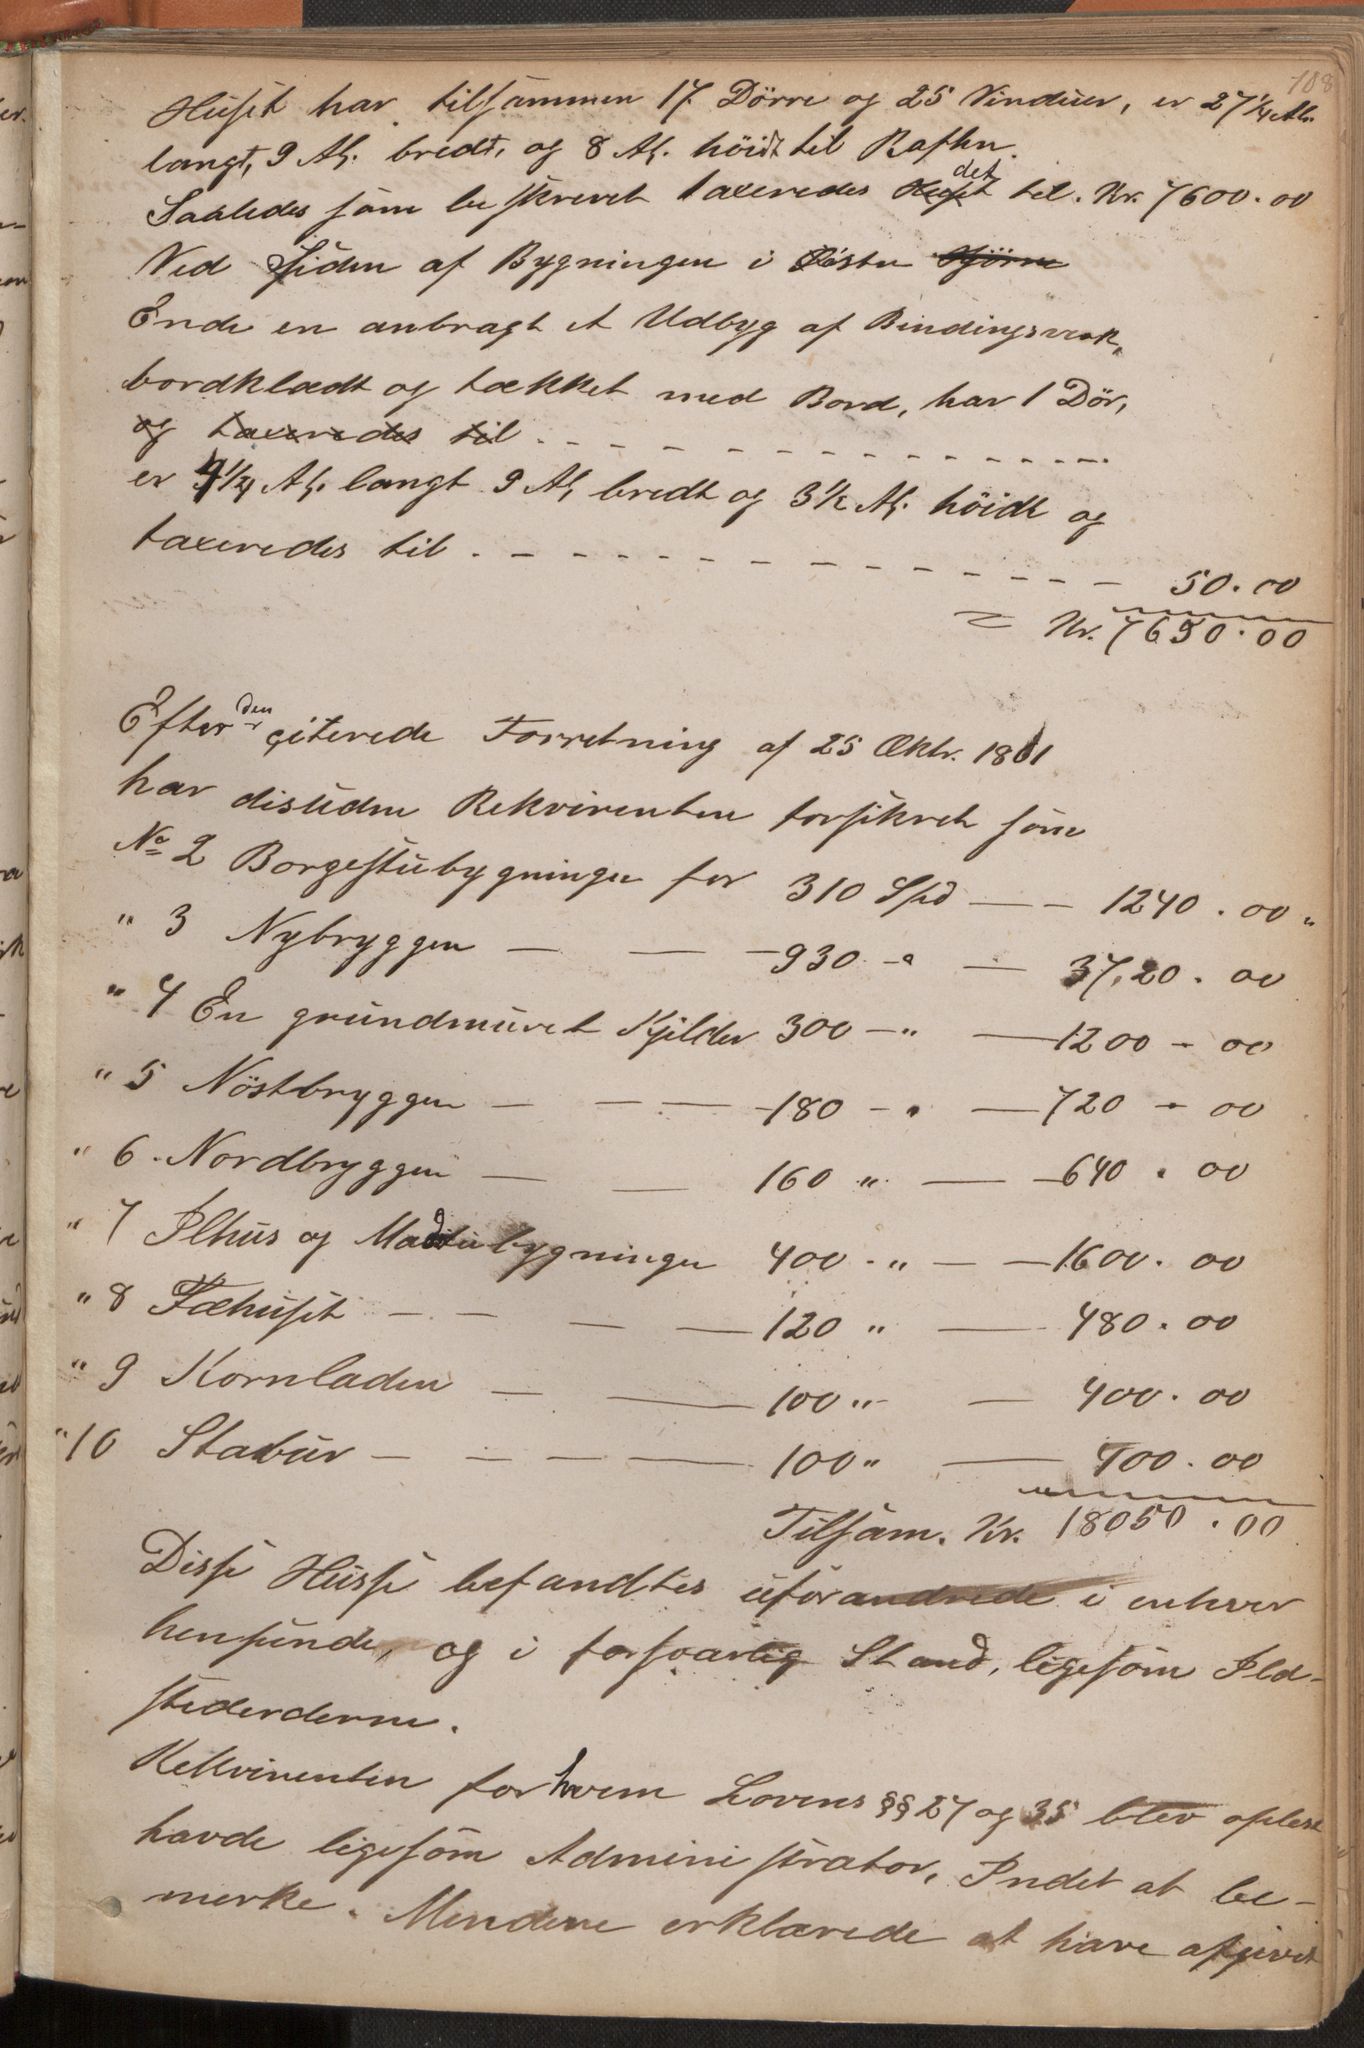 108
Huset har tilsammen 17 Dörre og 25 Vinduer, er 27 1/4 Al.
langt, 9 Al. bredt, og 8 Al. höidt til Rafhn.
Saaledes som beskrevet taxeredes Huset det til. Kr. 7600.00
Ved Siden af Bygningen i Östre Hjörne
Ende en anbragt et Udbyg af Bindingsverk,
bordklædt og tækket med Bord, har 1 Dör,
og taxeredes til - - - - - - - - - - - - - - -
er 4 1/4 Al. langt 9 Al. bredt og 3 1/2 Al. höidt og
taxeredes til - - - - - - - - - - - - - - - 50.00
= Kr. 7650.00
Efter den citerede Forretning af 25 Oktbr. 1861
har desuden Rekvirenten forsikret som
No 2 Borgestubygningen for 310 Spd — – 1240.00
" 3 Nybryggen — — – 930 " — 3720.00
" 4 En grundmuret Kjelder 300 – " — 1200 - 00
" 5 Nöstbryggen — — — 180 – " — 720 - 00
" 6 Nordbryggen — — 160 " — 640.00
" 7 Ilhus og Madstubygningen 400 " — — 1600.00
" 8 Fæhuset — — — — 120 " — 480.00
" 9 Kornladen — — 100 " — 400.00
" 10 Stabur — — — — 100 " — 400.00
Tilsam. Kr. 18050.00
Disse Husse befandtes uforandrede i enhver
henseende, og i forsvarlig Stand, ligesom Ild-
stederderne.
Rekvirenten for hvem Lovens §§ 27 og 35 blev oplæst
havde ligesom Administrator, Indet at be-
merke. Mendene erklærede at have afgivet